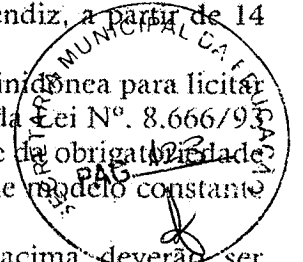 endiz, a partir de 14
inidônea para licitar
da Lei Nº. 8.666/93
e da obrigatoriedade
e modelo constante
acima deverão ser
SECRETARIA MUNICIPAL DA EDUCAÇÃO
PAG. 123